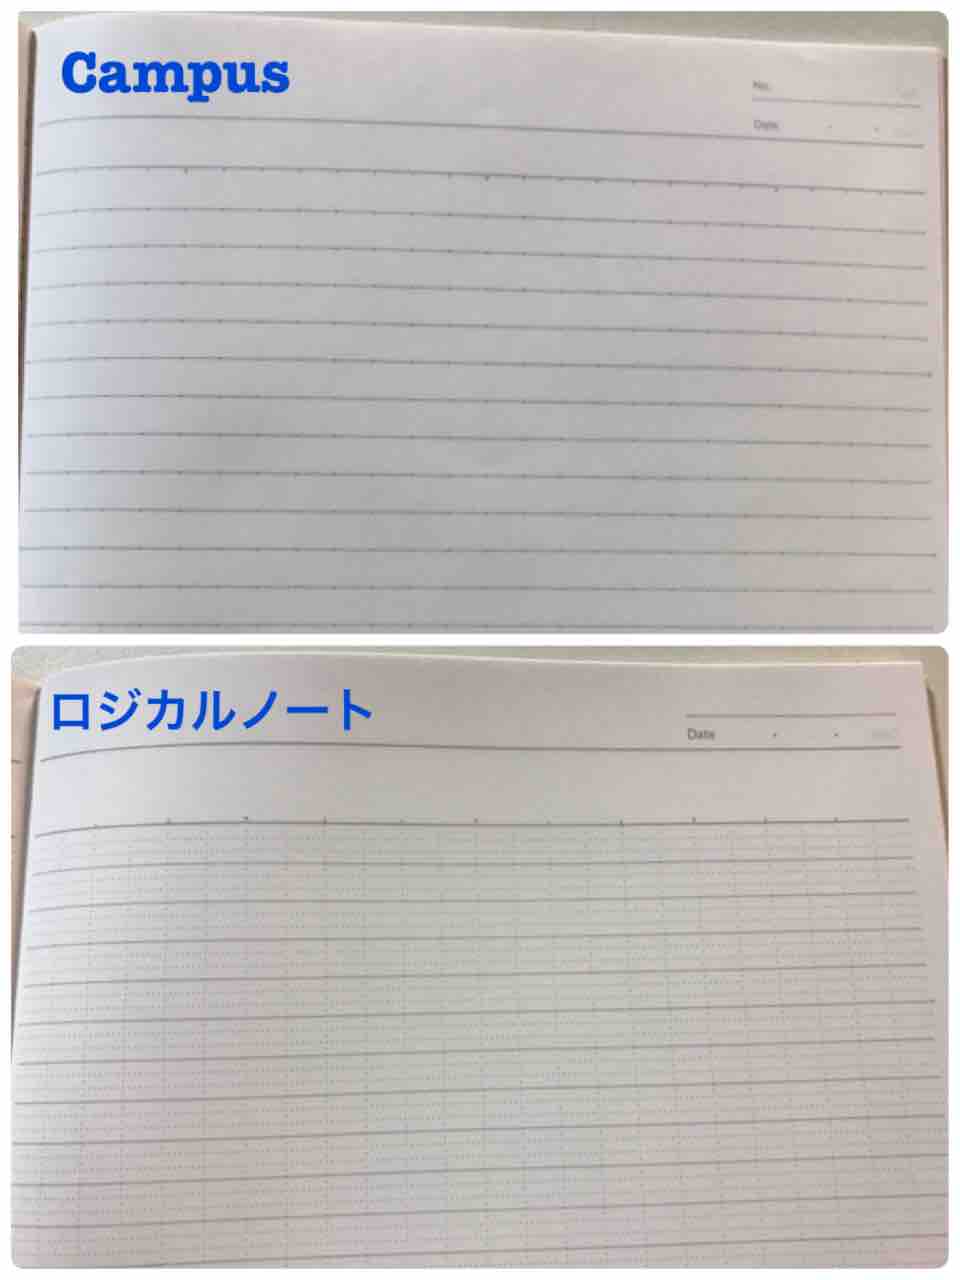 Campus
No.
Date
ロジカルノート
Date